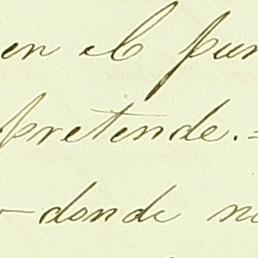 en el pun
pretende.=
-donde no